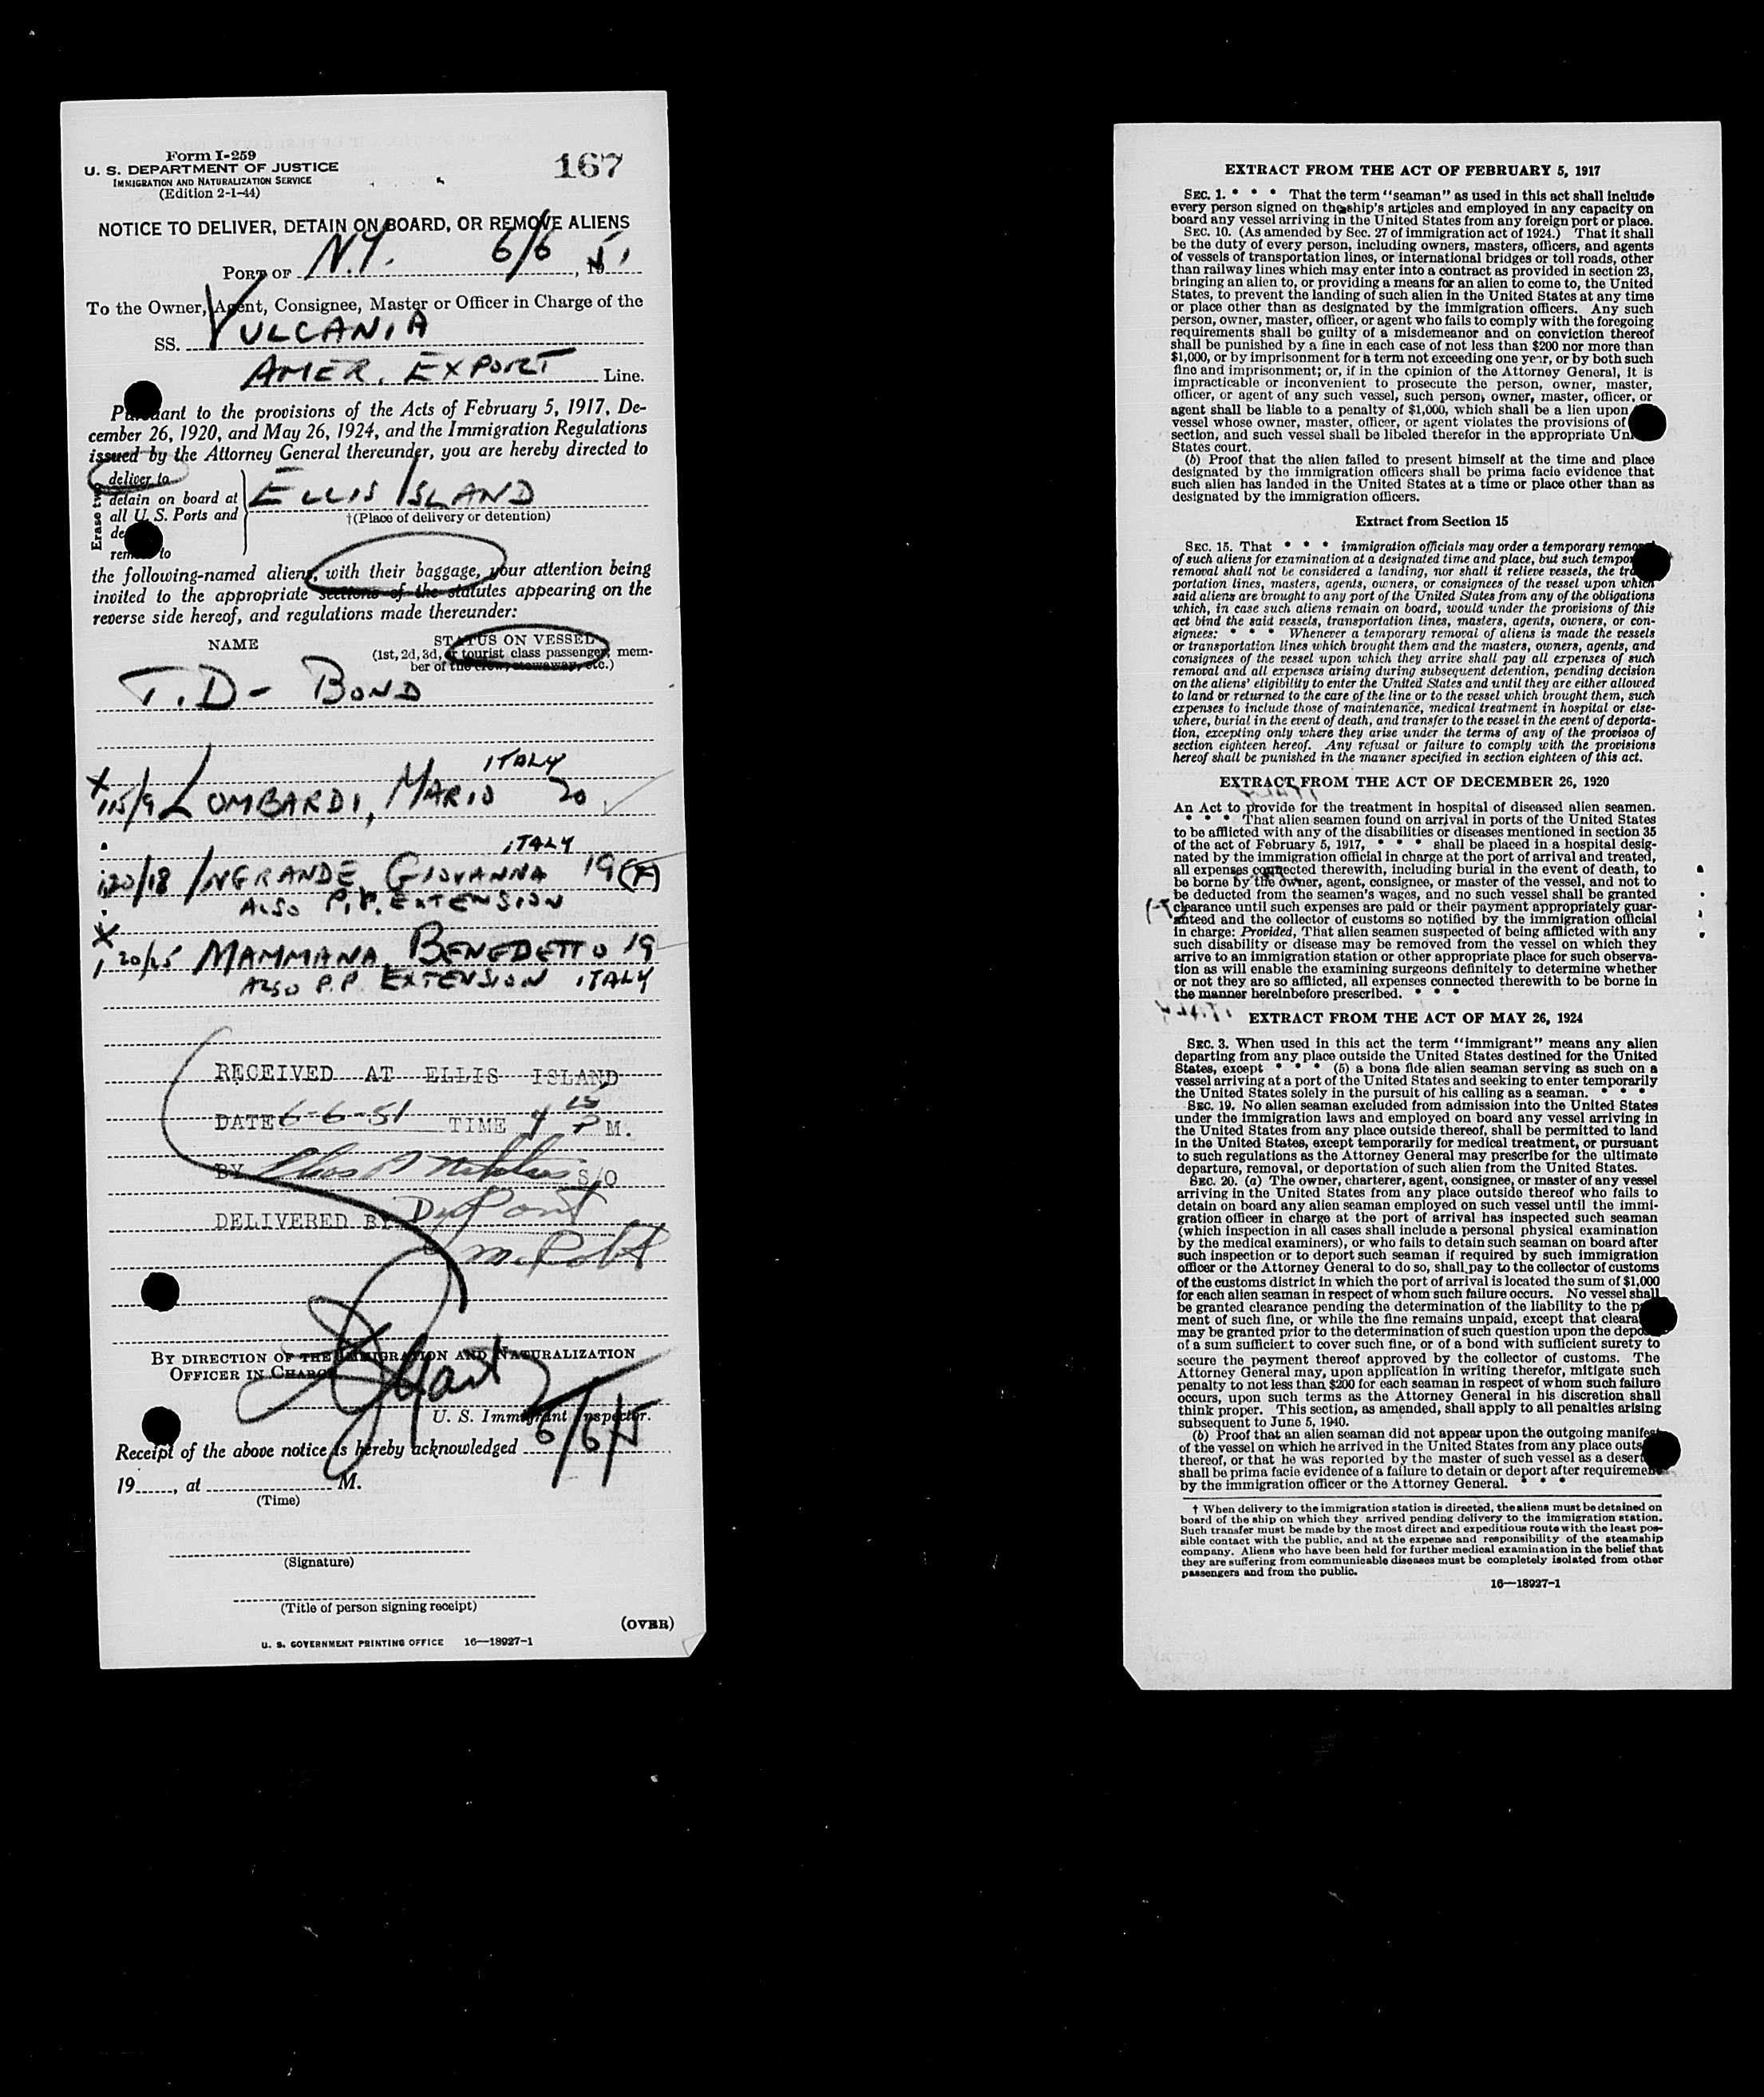 Form I-259
U. S. DEPARTMENT OF JUSTICE
IMMIGRATION AND NATURALIZATION SERVICE
(Edition 2-1-44)
167
NOTICE TO DELIVER, DETAIN ON BOARD, OR REMOVE ALIENS
PORT OF N.Y. 6/6, 1951
To the Owner, Agent, Consignee, Master or Officer in Charge of the
SS. VULCANIA
AMER. EXPORT Line.
Pursuant to the provisions of the Acts of February 5, 1917, De-
cember 26, 1920, and May 26, 1924, and the Immigration Regulations
issued by the Attorney General thereunder, you are hereby directed to
Erase two
deliver to
detain on board at
all U. S. Ports and
de
remove to
ELLIS ISLAND
†(Place of delivery or detention)
the following-named aliens, with their baggage, your attention being
invited to the appropriate sections of the statutes appearing on the
reverse side hereof, and regulations made thereunder:
NAME
STATUS ON VESSEL
(1st, 2d, 3d, or tourist class passenger, mem-
ber of the crew, stowaway, etc.)
T.D- BOND
ITALY
X 115/9 LOMBARDI, MARIO 20
ITALY
120/18 INGRANDE, GIOVANNA 19 (F)
ALSO P.P. EXTENSION
X 120/25 MAMMANA, BENEDETTO 19
ALSO P.P. EXTENSION ITALY
RECEIVED AT ELLIS ISLAND
DATE 6-6-51 TIME 4 15 P M.
BY S/O
DELIVERED BY
BY DIRECTION OF THE IMMIGRATION AND NATURALIZATION
OFFICER IN CHARGE
U. S. Immigrant Inspector.
Receipt of the above notice is hereby acknowledged 6/6/5
19____, at ____ M.
(Time)
(Signature)
(Title of person signing receipt)
(OVER)
U. S. GOVERNMENT PRINTING OFFICE 16—18927-1
EXTRACT FROM THE ACT OF FEBRUARY 5, 1917
SEC. 1. * * * That the term "seaman" as used in this act shall include
every person signed on the ship's articles and employed in any capacity on
board any vessel arriving in the United States from any foreign port or place.
SEC. 10. (As amended by Sec. 27 of immigration act of 1924.) That it shall
be the duty of every person, including owners, masters, officers, and agents
of vessels of transportation lines, or international bridges or toll roads, other
than railway lines which may enter into a contract as provided in section 23,
bringing an alien to, or providing a means for an alien to come to, the United
States, to prevent the landing of such alien in the United States at any time
or place other than as designated by the immigration officers. Any such
person, owner, master, officer, or agent who fails to comply with the foregoing
requirements shall be guilty of a misdemeanor and on conviction thereof
shall be punished by a fine in each case of not less than $200 nor more than
$1,000, or by imprisonment for a term not exceeding one year, or by both such
fine and imprisonment; or, if in the opinion of the Attorney General, it is
impracticable or inconvenient to prosecute the person, owner, master,
officer, or agent of any such vessel, such person, owner, master, officer, or
agent shall be liable to a penalty of $1,000, which shall be a lien upon
vessel whose owner, master, officer, or agent violates the provisions of
section, and such vessel shall be libeled therefor in the appropriate Uni
States court.
(b) Proof that the alien failed to present himself at the time and place
designated by the immigration officers shall be prima facie evidence that
such alien has landed in the United States at a time or place other than as
designated by the immigration officers.
Extract from Section 15
SEC. 15. That * * * immigration officials may order a temporary removal
of such aliens for examination at a designated time and place, but such tempor
removal shall not be considered a landing, nor shall it relieve vessels, the tra
portation lines, masters, agents, owners, or consignees of the vessel upon which
said aliens are brought to any port of the United States from any of the obligations
which, in case such aliens remain on board, would under the provisions of this
act bind the said vessels, transportation lines, masters, agents, owners, or con-
signees: * * * Whenever a temporary removal of aliens is made the vessels
or transportation lines which brought them and the masters, owners, agents, and
consignees of the vessel upon which they arrive shall pay all expenses of such
removal and all expenses arising during subsequent detention, pending decision
on the aliens' eligibility to enter the United States and until they are either allowed
to land or returned to the care of the line or to the vessel which brought them, such
expenses to include those of maintenance, medical treatment in hospital or else-
where, burial in the event of death, and transfer to the vessel in the event of deporta-
tion, excepting only where they arise under the terms of any of the provisos of
section eighteen hereof. Any refusal or failure to comply with the provisions
hereof shall be punished in the manner specified in section eighteen of this act.
EXTRACT FROM THE ACT OF DECEMBER 26, 1920
An Act to provide for the treatment in hospital of diseased alien seamen.
* * * That alien seamen found on arrival in ports of the United States
to be afflicted with any of the disabilities or diseases mentioned in section 35
of the act of February 5, 1917, * * * shall be placed in a hospital desig-
nated by the immigration official in charge at the port of arrival and treated,
all expenses connected therewith, including burial in the event of death, to
be borne by the owner, agent, consignee, or master of the vessel, and not to
be deducted from the seamen's wages, and no such vessel shall be granted
clearance until such expenses are paid or their payment appropriately guar-
anteed and the collector of customs so notified by the immigration official
in charge: Provided, That alien seamen suspected of being afflicted with any
such disability or disease may be removed from the vessel on which they
arrive to an immigration station or other appropriate place for such observa-
tion as will enable the examining surgeons definitely to determine whether
or not they are so afflicted, all expenses connected therewith to be borne in
the manner hereinbefore prescribed. * * *
EXTRACT FROM THE ACT OF MAY 26, 1924
SEC. 3. When used in this act the term "immigrant" means any alien
departing from any place outside the United States destined for the United
States, except * * * (5) a bona fide alien seaman serving as such on a
vessel arriving at a port of the United States and seeking to enter temporarily
the United States solely in the pursuit of his calling as a seaman. * * *
SEC. 19. No alien seaman excluded from admission into the United States
under the immigration laws and employed on board any vessel arriving in
the United States from any place outside thereof, shall be permitted to land
in the United States, except temporarily for medical treatment, or pursuant
to such regulations as the Attorney General may prescribe for the ultimate
departure, removal, or deportation of such alien from the United States.
SEC. 20. (a) The owner, charterer, agent, consignee, or master of any vessel
arriving in the United States from any place outside thereof who fails to
detain on board any alien seaman employed on such vessel until the immi-
gration officer in charge at the port of arrival has inspected such seaman
(which inspection in all cases shall include a personal physical examination
by the medical examiners), or who fails to detain such seaman on board after
such inspection or to deport such seaman if required by such immigration
officer or the Attorney General to do so, shall pay to the collector of customs
of the customs district in which the port of arrival is located the sum of $1,000
for each alien seaman in respect of whom such failure occurs. No vessel shall
be granted clearance pending the determination of the liability to the p
ment of such fine, or while the fine remains unpaid, except that cleara
may be granted prior to the determination of such question upon the depos
of a sum sufficient to cover such fine, or of a bond with sufficient surety to
secure the payment thereof approved by the collector of customs. The
Attorney General may, upon application in writing therefor, mitigate such
penalty to not less than $200 for each seaman in respect of whom such failure
occurs, upon such terms as the Attorney General in his discretion shall
think proper. This section, as amended, shall apply to all penalties arising
subsequent to June 5, 1940.
(b) Proof that an alien seaman did not appear upon the outgoing manifest
of the vessel on which he arrived in the United States from any place outs
thereof, or that he was reported by the master of such vessel as a desert
shall be prima facie evidence of a failure to detain or deport after requirement
by the immigration officer or the Attorney General. * * *
† When delivery to the immigration station is directed, the aliens must be detained on
board of the ship on which they arrived pending delivery to the immigration station.
Such transfer must be made by the most direct and expeditious route with the least pos-
sible contact with the public, and at the expense and responsibility of the steamship
company. Aliens who have been held for further medical examination in the belief that
they are suffering from communicable diseases must be completely isolated from other
passengers and from the public.
16—18927-1